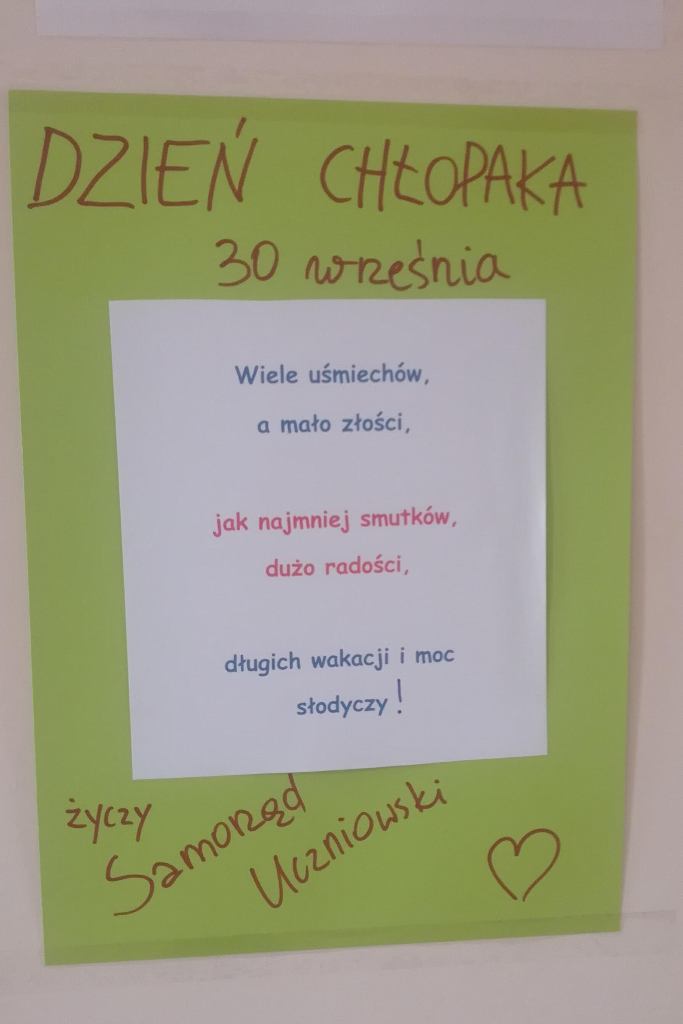 DZIEŃ CHŁOPAKA
30 września
Wiele uśmiechów,
a mało złości,
jak najmniej smutków,
dużo radości,
długich wakacji i moc
słodyczy!
życzy
Samorząd
Uczniowski